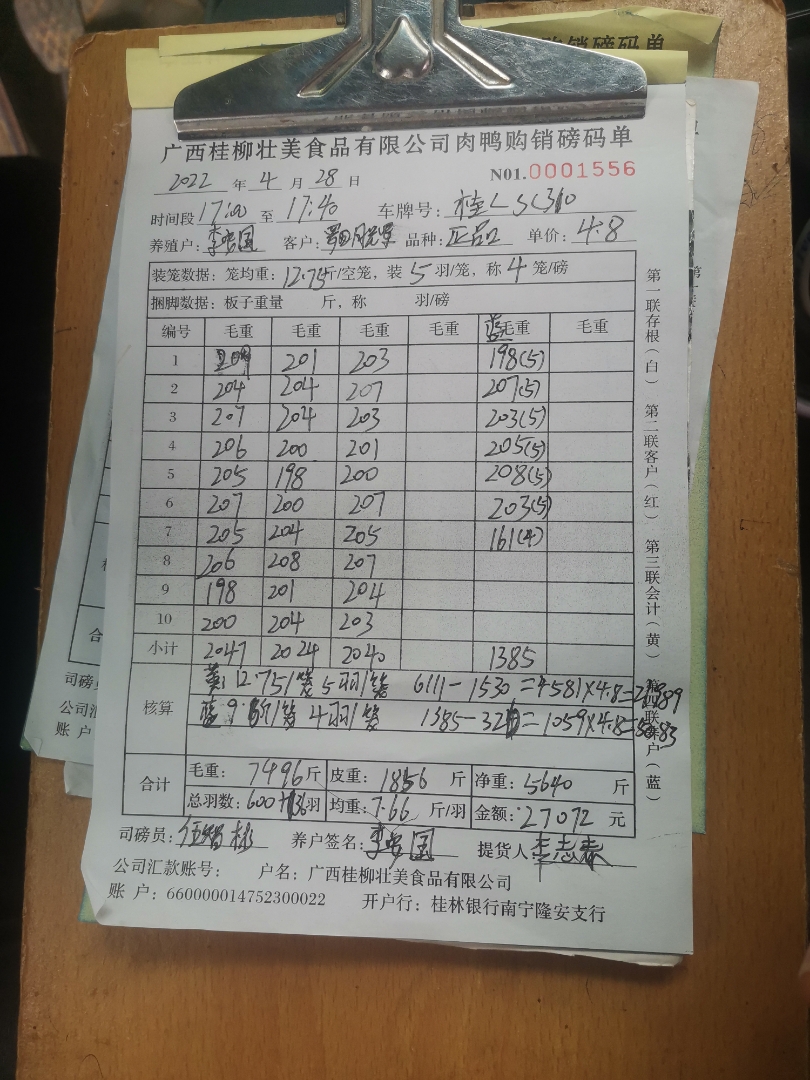 购销磅码单
广西桂柳壮美食品有限公司肉鸭购销磅码单
N01.0001556
2022 年 4 月 28 日
时间段 17:00 至 17:40 车牌号: 桂L
养殖户: 国 客户: 品种: 正品 单价: 4.8
装笼数据: 笼均重: 12.75斤/空笼, 装 5 羽/笼, 称 4 笼/磅
捆脚数据: 板子重量 斤, 称 羽/磅
编号 毛重 毛重 毛重 毛重 蓝毛重 毛重
1 201 203 198(5)
2 204 204 207 207(5)
3 207 204 203 203(5)
4 206 200 201 205(5)
5 205 198 200 208(5)
6 207 200 207 203(5)
7 205 204 205 161(4)
8 206 208 207
9 198 201 204
10 200 204 203
小计 2047 2024 2040 1385
核算 12.75/笼 5羽/笼 6111-1530=4581×4.8=
蓝 4羽/笼 1385- =1059×4.8=
合计 毛重: 7496斤 皮重: 1856 斤 净重: 5640 斤
总羽数: 600+136羽 均重: 7.66 斤/羽 金额: 27072 元
司磅员: 养户签名: 国 提货人 李志
公司汇款账号: 户名: 广西桂柳壮美食品有限公司
账 户: 660000014752300022 开户行: 桂林银行南宁隆安支行
第一联存根(白) 第二联客户(红) 第三联会计(黄) 第四联养户(蓝)